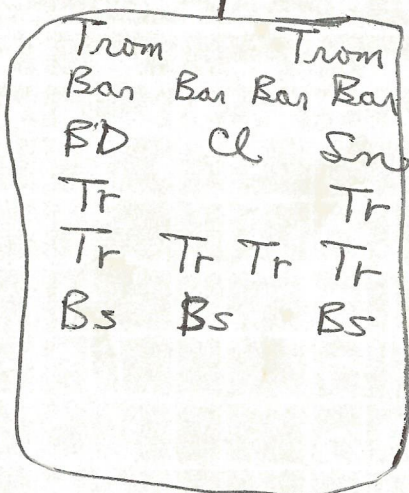 Trom Trom
Bar Bar Bar Bar
BD Cl Sn
Tr Tr
Tr Tr Tr Tr
Bs Bs Bs